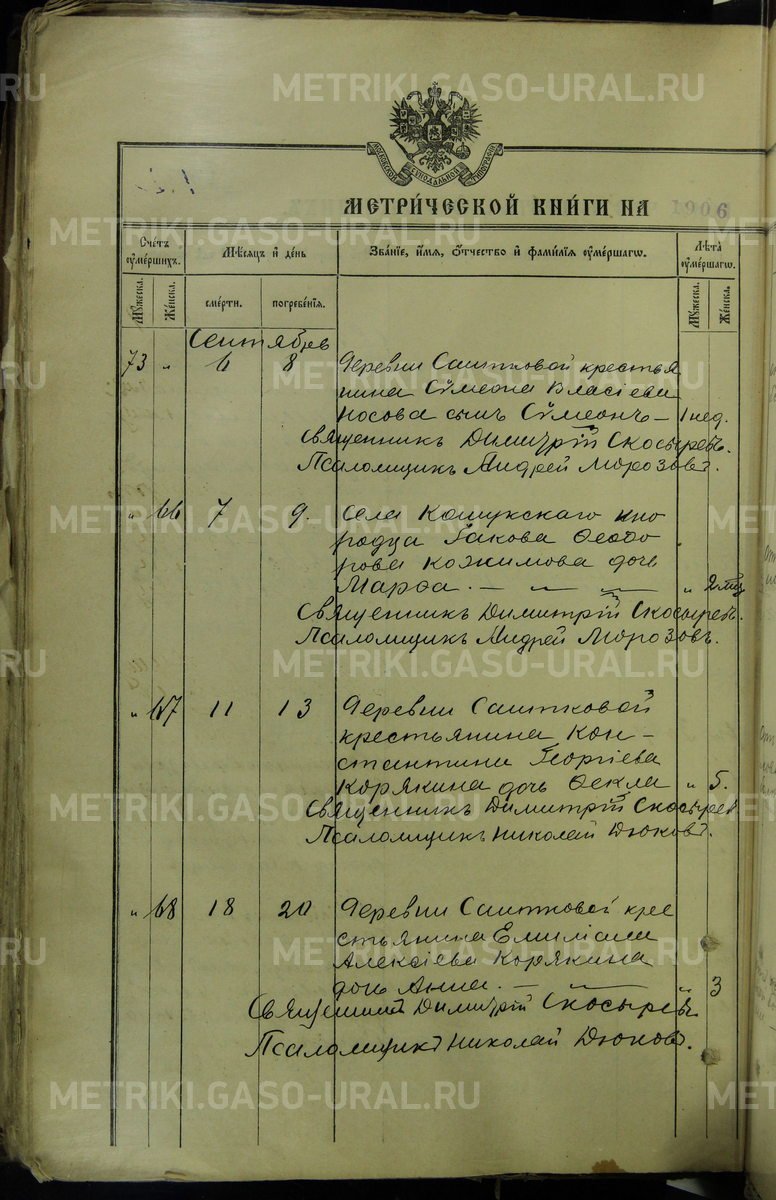 METRIKI.GASO-URAL.RU
МОСКОВСКОЙ СѴНОДАЛЬНОЙ ТИПОГРАФІИ
МЕТРИ́ЧЕСКОЙ КНИ́ГИ НА 1906
Сче́тъ ᲂумерших.
Мѣсяцъ и҆ де́нь
Зва́ніе, и҆́мя, ѻ҆́тчество и҆ фами́лія ᲂуме́ршагѡ.
Лѣта̀ ᲂуме́ршагѡ.
Мꙋжеска. Же́нска. сме́рти. погребе́нія. Мꙋжеска. Же́нска.
Сентябрь
73 " 6 8 Деревни Саитковой крестья
нина Сѵмеона Власіева
Носова сынъ Сѵмеонъ — 1 нед.
Священникъ Димитрій Скосыревъ.
Псаломщикъ Андрей Морозовъ.
" 66 7 9. Села Кошукскаго ино
родца Іакова Ѳеодо
рова Кожимова дочь
Марѳа. — " 2 мц
Священникъ Димитрій Скосыревъ.
Псаломщикъ Андрей Морозовъ.
" 67 11 13 Деревни Саитковой
крестьянина Кон-
стантина Георгіева
Корякина дочь Ѳекла " 5.
Священникъ Димитрій Скосырев
Псаломщикъ Николай Дюковъ.
" 68 18 20 Деревни Саитковой кре
стьянина Емиліана
Алексіева Корякина
дочь Анна. — " 3
Священникъ Димитрій Скосыревъ.
Псаломщикъ Николай Дюковъ.